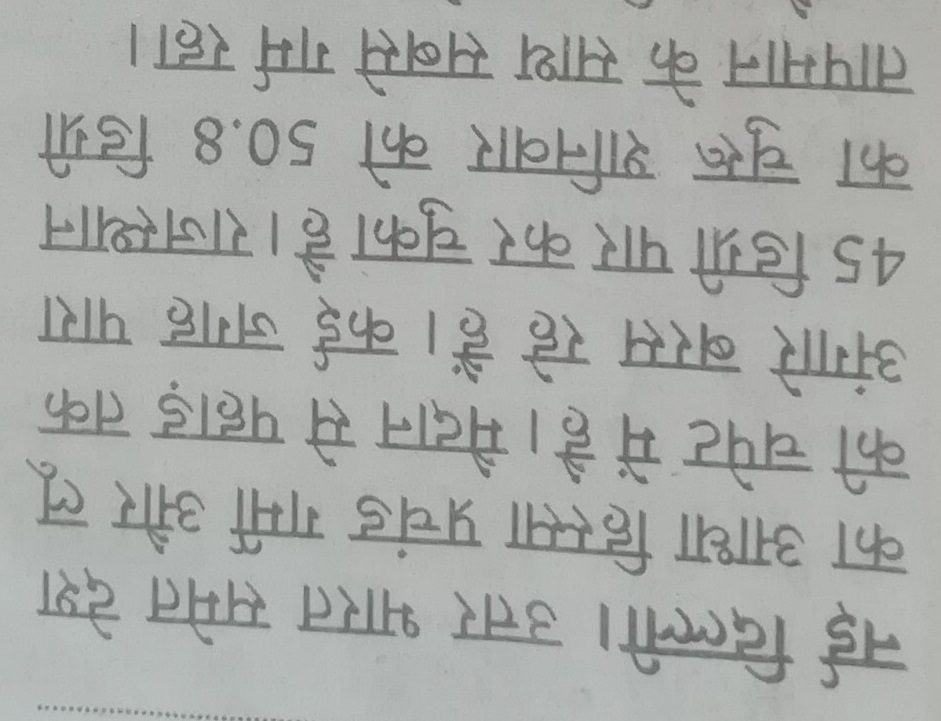 नई दिल्ली। उत्तर भारत समेत देश
का आधा हिस्सा प्रचंड गर्मी और लू
की चपेट में है। मैदान से पहाड़ तक
अंगारे बरस रहे हैं। कई जगह पारा
45 डिग्री पार कर चुका है। राजस्थान
का चुरू शनिवार को 50.8 डिग्री
तापमान के साथ सबसे गर्म रहा।